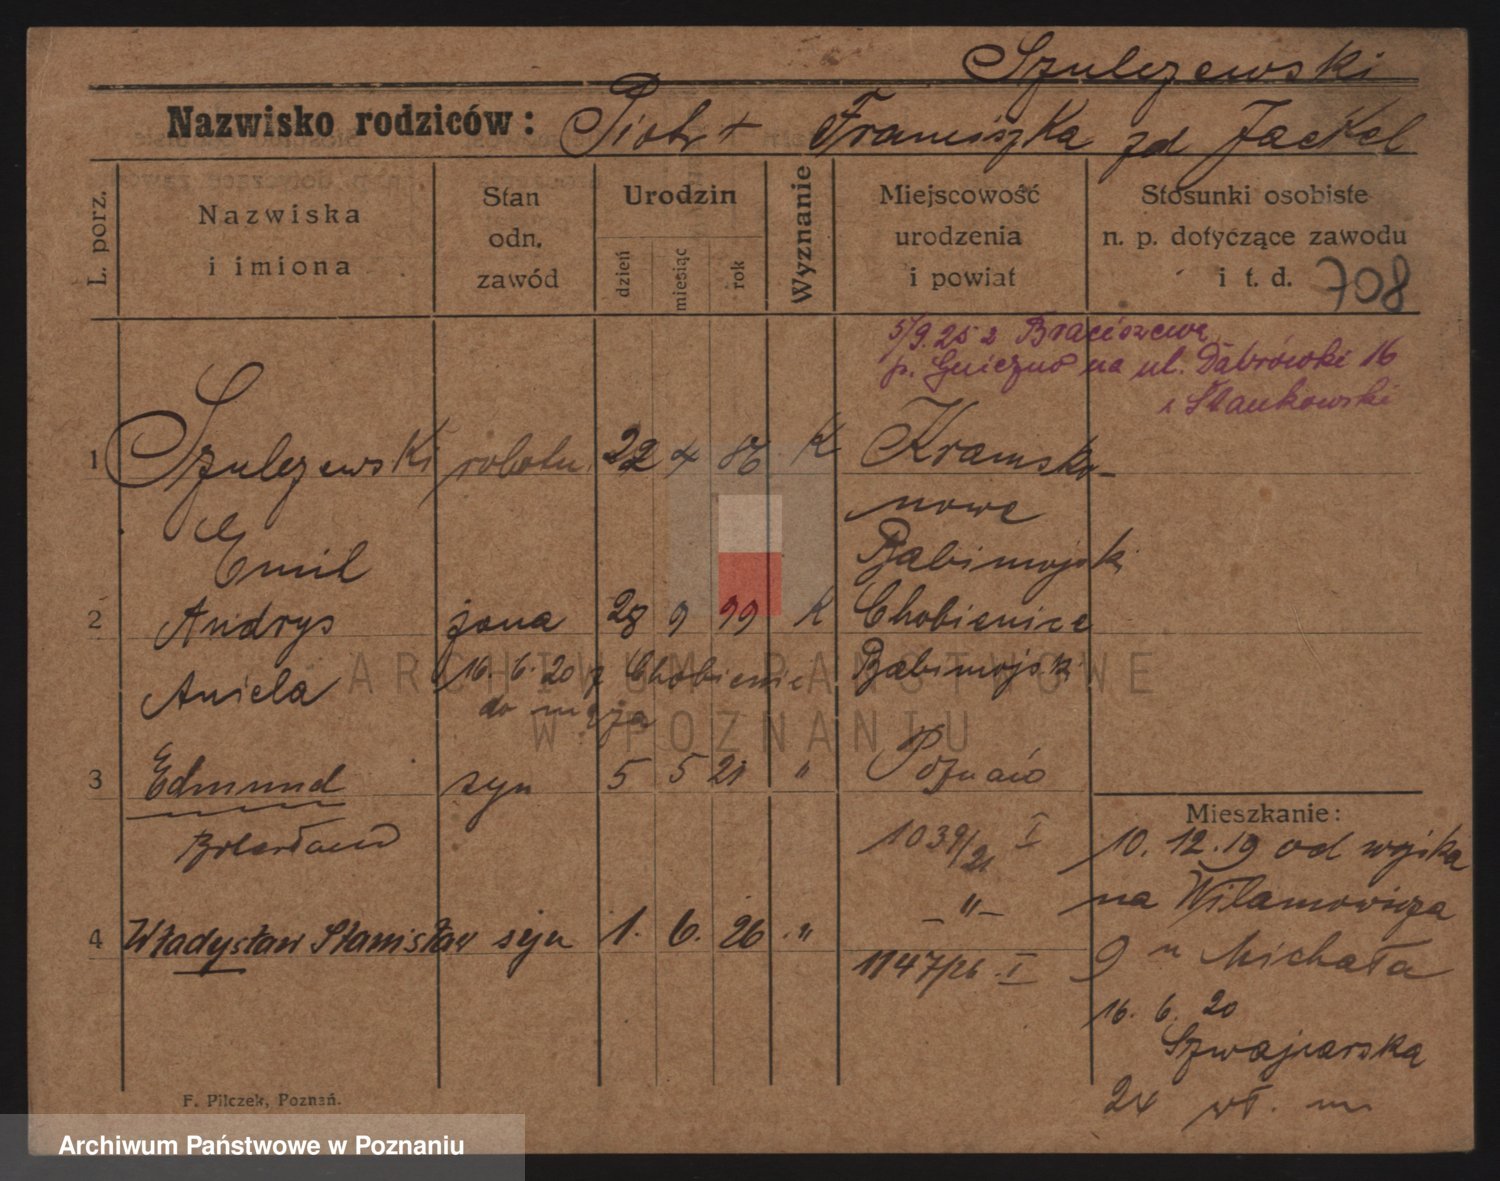 Szulczewski
Nazwisko rodziców: Piotr + Franciszka zd Jaekel
L. porz.
Nazwiska
i imiona
Stan
odn.
zawód
Urodzin
dzień
miesiąc
rok
Wyznanie
Miejscowość
urodzenia
i powiat
Stosunki osobiste
n. p. dotyczące zawodu
i t. d.
708
5/9.25 z Braciszewa
p. Gniezno na ul. Dąbrówki 16
Stankowski
1 Szulczewski robotn. 22 4 86 K Kramsko-
nowe
Emil Babimojski
2 Andrys żona 28 9 99 K Chobienice
Aniela 16.6.20 z Chobienic Babimojski
do męża
3 Edmund syn 5 5 21 " Poznań
1039/21 I
4 Władysław Stanisław syn 1. 6. 26 " —"—
1147/26 I
Mieszkanie:
10.12.19 od wojska
na Wilamowicza
9 u Michała
16. 6. 20
Szwajcarska
24 wł. m
F. Pilczek, Poznań.
ARCHIWUM PAŃSTWOWE
W POZNANIU
Archiwum Państwowe w Poznaniu